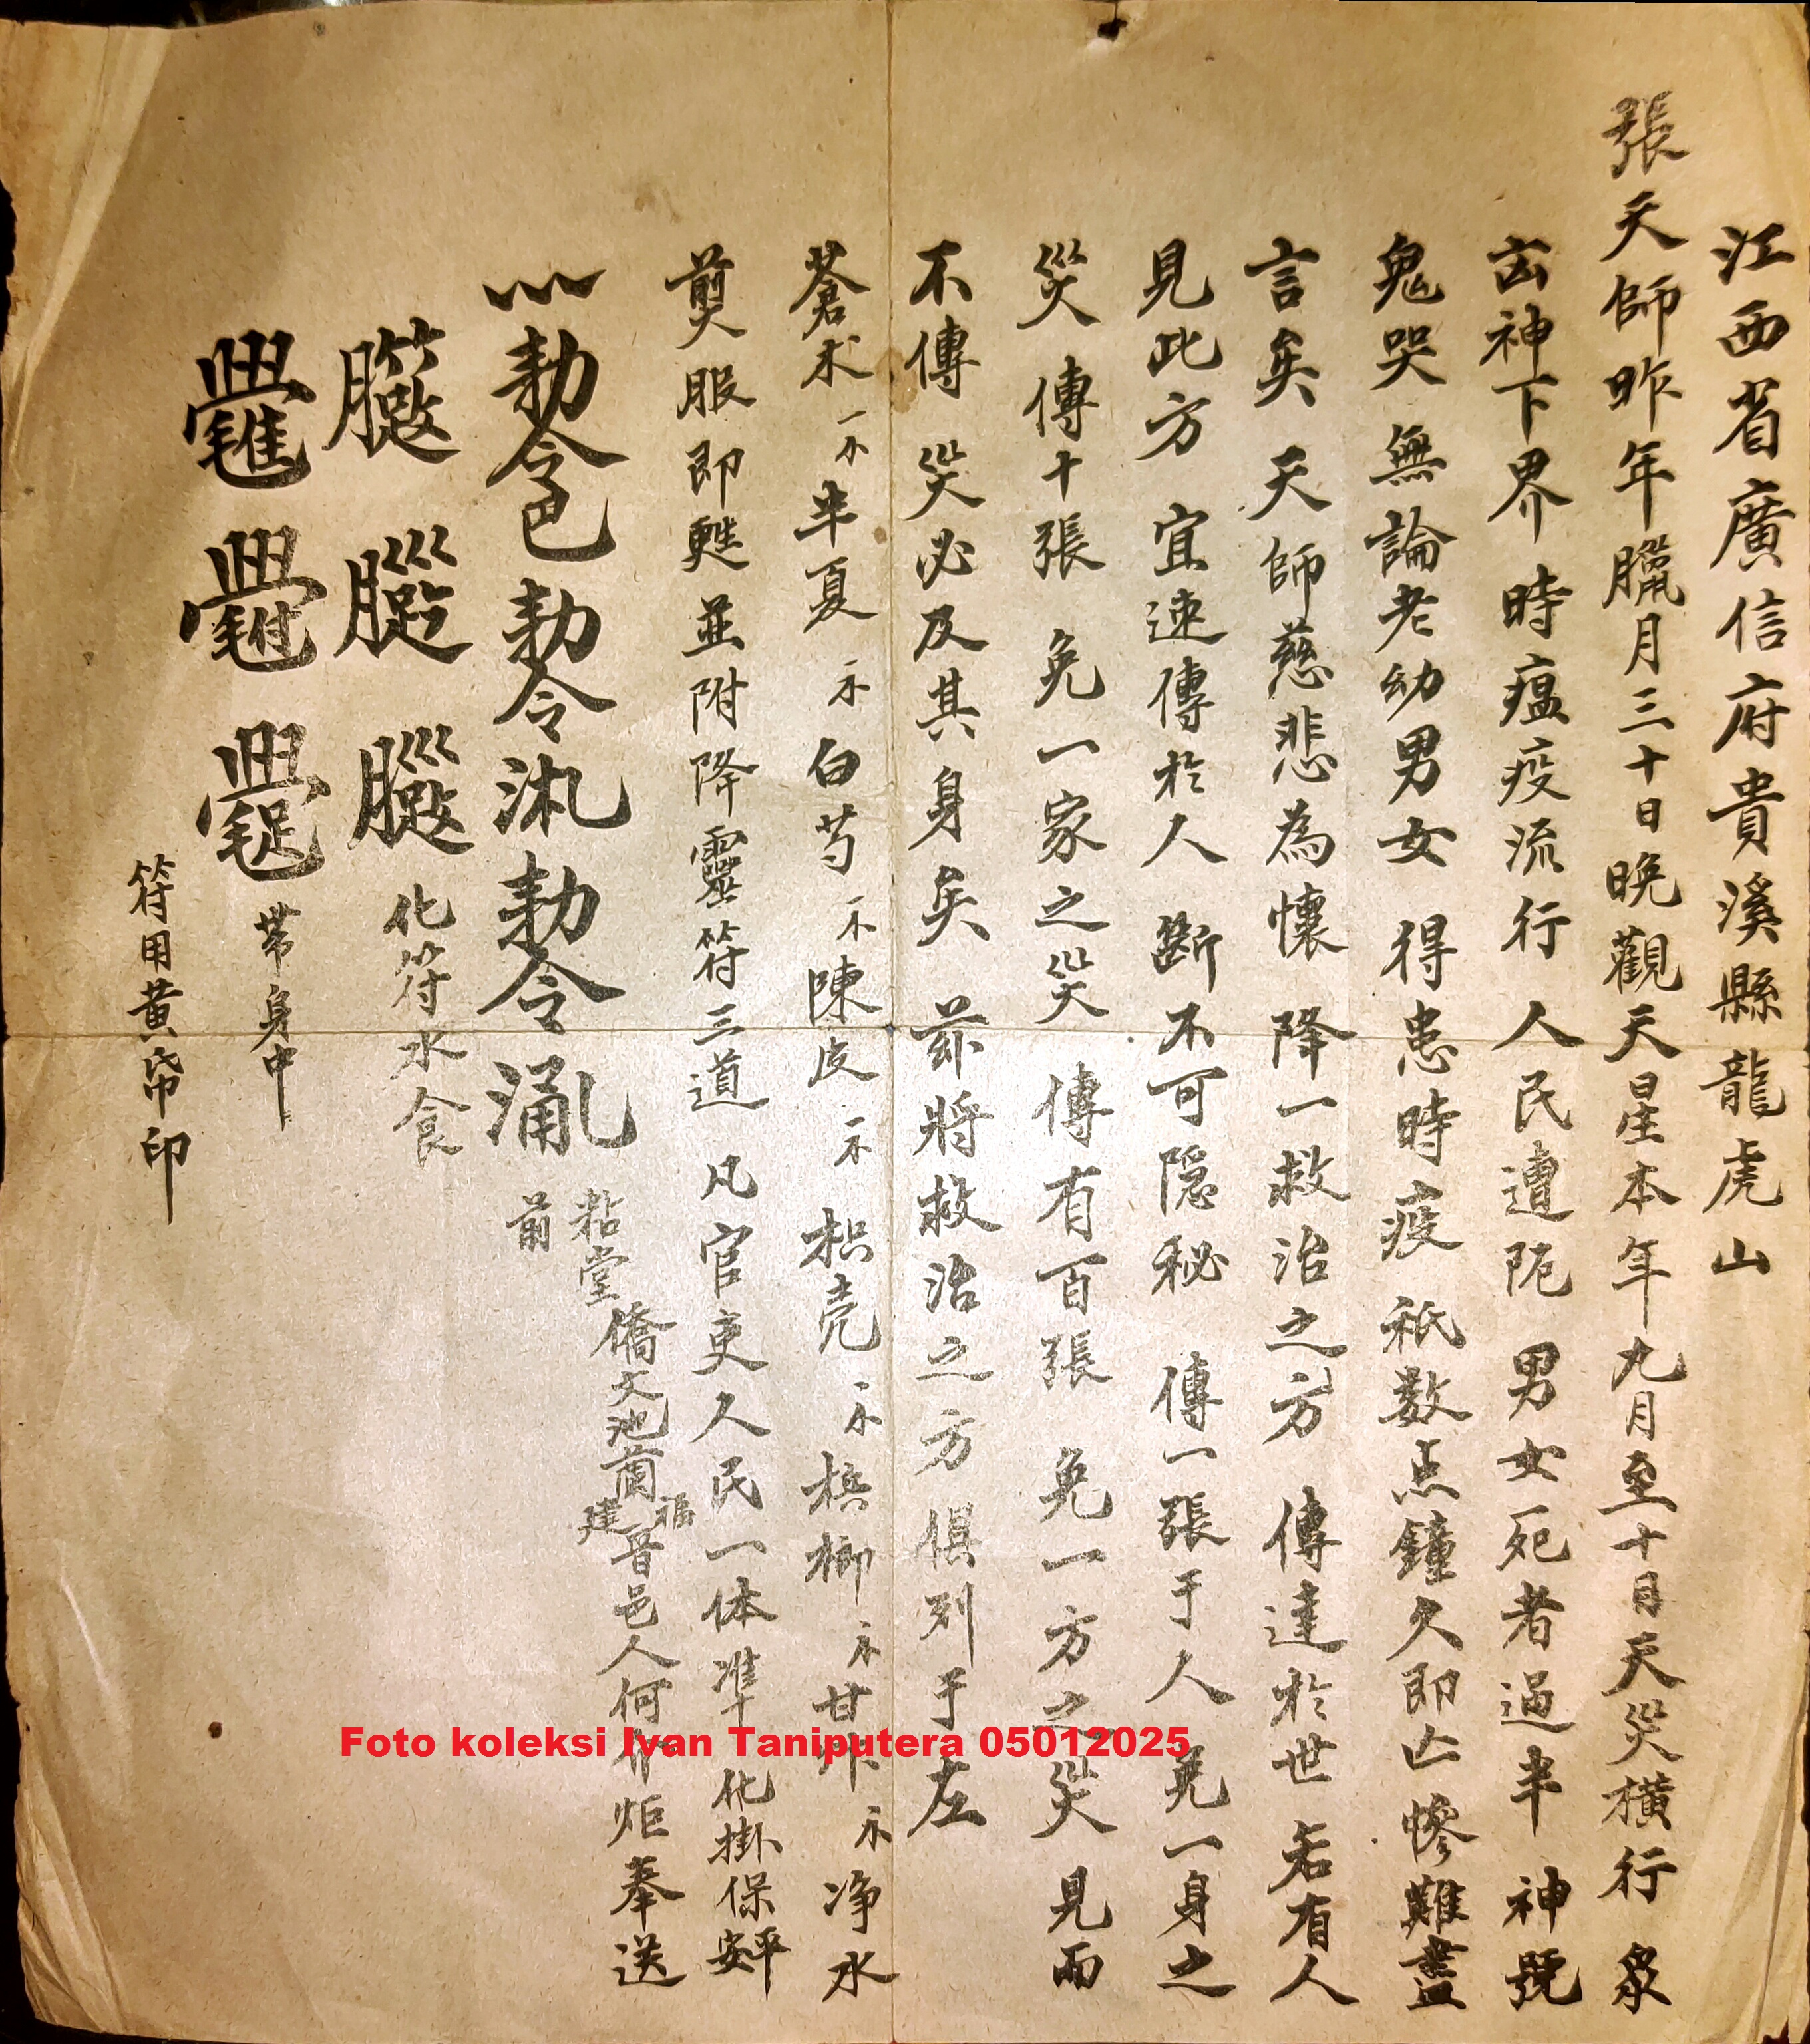 江西省廣信府貴溪縣龍虎山
張天師昨年臘月三十日晚觀天星本年九月至十月天災橫行衆
凶神下界時瘟疫流行人民遭阨男女死者過半神號
鬼哭無論老幼男女得患時疫祇数点鐘久即亡慘難盡
言矣天師慈悲為懷降一救治之方傳達於世若有人
見此方宜速傳於人斷不可隱秘傳一張于人免一身之
災傳十張免一家之災傳有百張免一方之災見而
不傳災必及其身矣茲將救治之方俱列于左
蒼朮半夏白芍陳皮枳壳梹榔甘艸净水
煎服即甦並附降靈符三道凡官吏人民一体準化掛保平安
勅令勅令勅令
粘堂前
僑文池蘭福建晉邑人何介炬奉送
化符水食
帶身中
符用黃帋印
Foto koleksi Ivan Taniputera 05012025